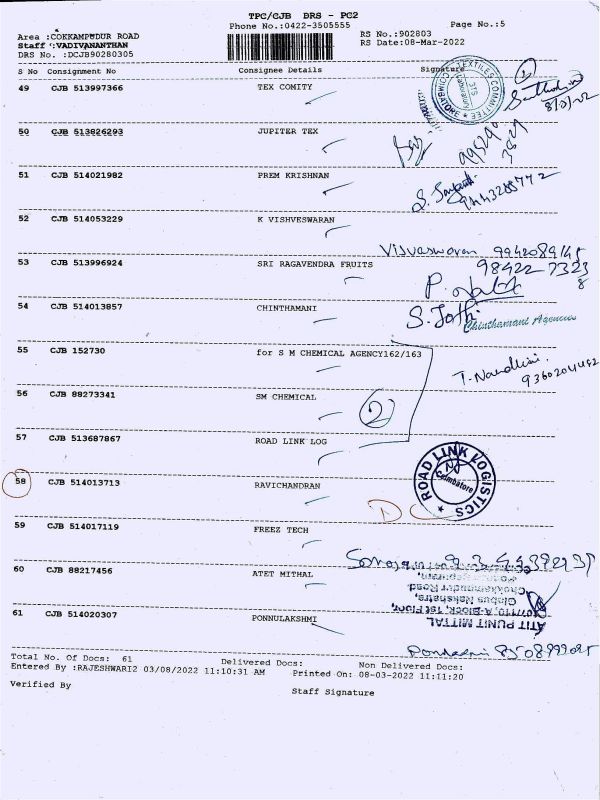 TPC/CJB DRS - PC2
Phone No.:0422-3505555
Page No.:5
Area :COKKAMPUDUR ROAD
Staff :VADIVANANTHAN
DRS No. :DCJB90280305
RS No.:902803
RS Date:08-Mar-2022
S No Consignment No Consignee Details Signature
49 CJB 513997366 TEX COMITY
50 CJB 513826293 JUPITER TEX
51 CJB 514021982 PREM KRISHNAN
9443288772
52 CJB 514053229 K VISHVESWARAN
Visvaswaran 9942089145
53 CJB 513996924 SRI RAGAVENDRA FRUITS
98422 7323
8
54 CJB 514013857 CHINTHAMANI
S. Jothi
Chinthamani Agencies
55 CJB 152730 for S M CHEMICAL AGENCY162/163
T. Nandhini
56 CJB 88273341 SM CHEMICAL
2
57 CJB 513687867 ROAD LINK LOG
ROAD LINK LOGISTICS
Coimbatore
58 CJB 514013713 RAVICHANDRAN
59 CJB 514017119 FREEZ TECH
60 CJB 88217456 ATET MITHAL
ATIT PUNIT MITTAL
A-Block, 1st Floor,
Globus Nakshatra,
Chokkampudur Road,
61 CJB 514020307 PONNULAKSHMI
Total No. Of Docs: 61 Delivered Docs: Non Delivered Docs:
Entered By :RAJESHWARI2 03/08/2022 11:10:31 AM Printed On: 08-03-2022 11:11:20
Verified By
Staff Signature